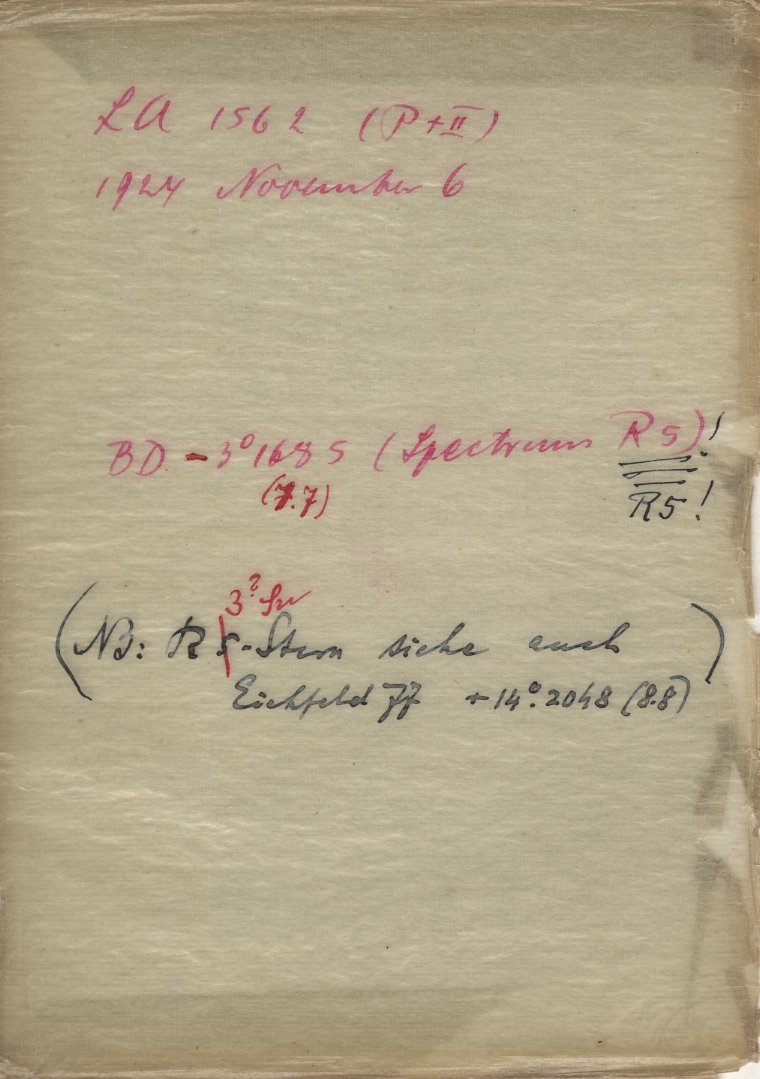 LA 1562 (P+II)
1924 November 6
BD -3°1685 (Spectrum R5)!
(7.7)
R5!
3?
(NB: R5-Stern siehe auch
Eichfeld 77 +14°.2048 (8.8))